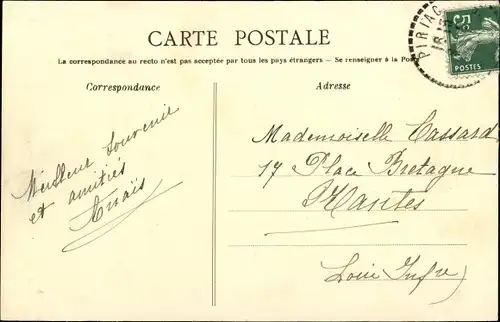 CARTE POSTALE
La correspondance au recto n'est pas acceptée par tous les pays étrangers — Se renseigner à la Pos
Correspondance
Adresse
PIRIAC
18
5
POSTES
Meilleur Souvenir
et amitiés
Anaïs
Mademoiselle Cassard
17 Place Bretagne
Nantes
Loire Infre)